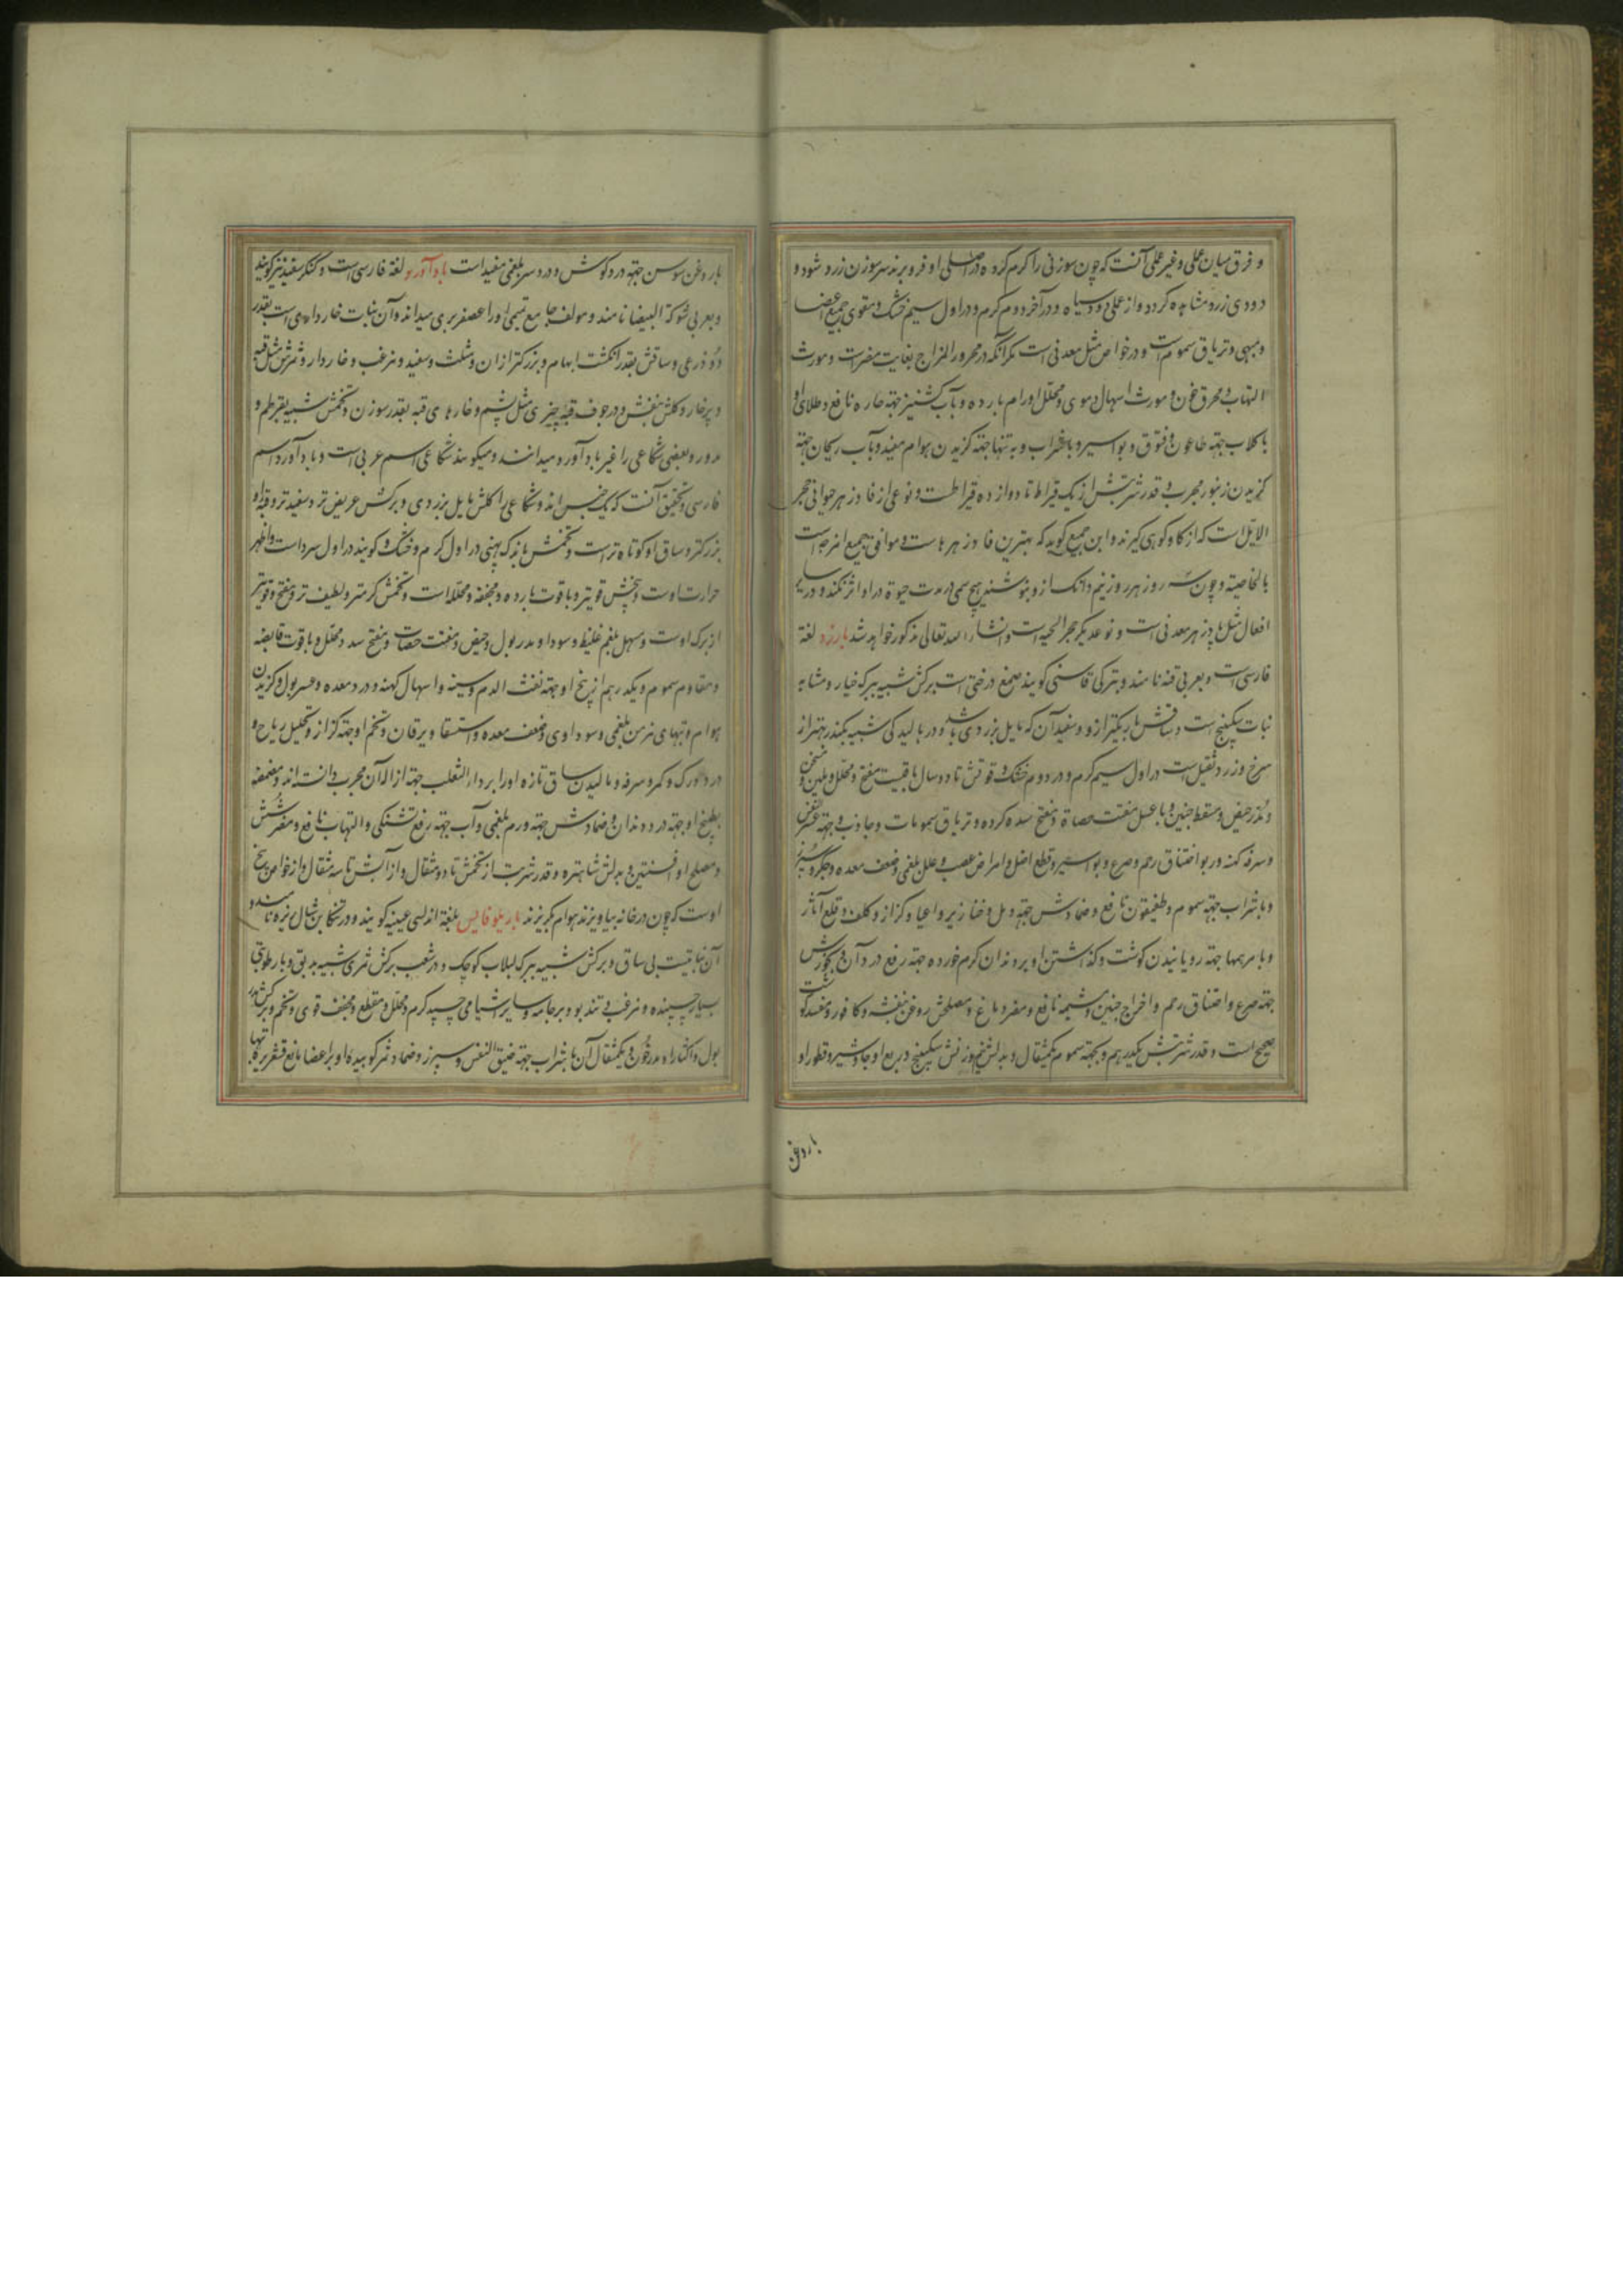 و فرق میان عملی و غیر عملی آنست که چون سوزنی را کرم کرده در اصلی او فرو برند سر سوزن زرد شود و
دودی زرد مشاهده کردد و از عملی دود سیاه و در آخر دوم کرم و در اول سیم خشک و مقوی جمیع اعضا
و مبهی و تریاق سموم است و در خواص مثل معدنی است مکر آنکه در محرور المزاج بغایت مضرات و مورث
التهاب و محرق خون و مورث اسهال دموی و محلل اورام بارده و بآب کشنیز جهة حاره نافع و طلای او
با کلاب جهة طاعون و فتوق و بواسیر و با شراب و به تنها جهة کزیدن هوام مفید و بآب ریحان جهة
کزیدن زنبور مجرب و قدر شربتش از یک قیراط تا دوازده قیراطست و نوعی از فادزهر حیوانی حجر
الایل است که از کاو کوهی کیرند و ابن جمیع کوید که بهترین فادزهرهاست و موافق جمیع امزجه است
بالخاصیة و چون سه روز هر روز نیم دانک از و بنوشند هیچ سمی در مدت حیوة در او اثر نکند و در سایر
افعال مثل پادزهر معدنی است و نوعدیکر حجر الحیه است و انشاء الله تعالی مذکور خواهد شد بارزد لغة
فارسی است و بعربی قنه نامند و بترکی قاسنی کویند صمغ درختی است برکش شبیه ببرک خیار و مشابه
نبات سکبینج است و ساقش باریکتر از و و سفید آن که مایل بزردی باشد و در بالیدکی شبیه بکندر بهتر از
سرخ و زرد ثقیل است در اول سیم کرم و در دوم خشک و قوتش تا ده سال باقیست مفتح و محلل و ملین و مسخن
و مدر حیض و مسقط جنین و با عسل مفتت حصاة و مفتح سده کرده و تریاق سمومات و جاذب و جهة عسر نفس
و سرفه کهنه و ربو و اختناق رحم و صرع و بواسیر و قطع اخلاط و امراض عصب و علل بلغمی و ضعف معده و جکر و سپرز
و با شراب جهة سموم و طفیقون نافع و ضمادش جهة دمل و خنازیر و اعیا و کزاز و کلف و قلع آثار
و با مرهمها جهة رویانیدن کوشت و کذاشتن او بر دندان کرم خورده جهة رفع درد آن و بخورش
جهة صرع و اختناق رحم و اخراج جنین و مشیمه نافع و مضر دماغ و مصلحش روغن بنفشه و کافور و مفسد کوشت
صحیح است و قدر شربتش یکدرهم و بجهة سموم یکمثقال و بدلش نیم وزنش سکبینج و ربع او جاوشیر و قطور او
باروغن
باروغن سوسن جهة درد کوش و درد سر بلغمی مفید است بادآورد لغة فارسی است و کنکر سفید نیز کویند
و بعربی شوکة البیضا نامند و مولف جامع تمیمی او را عصفر بری میداند و آن نبات خارداری است بقدر
دو ذرعی و ساقش بقدر انکشت ابهام و بزرکتر از ان و مثلث و سفید و مزغب و خاردار و ثمرش مثل قبه
و پرخار و کلش بنفش و در جوف قبه چیزی مثل پشم و خارهای قبه بقدر سوزن و تخمش شبیه بقرطم و
مدور و بعضی شکاعی را غیر بادآورد میدانند و میکویند شکاعی اسم عربی است و بادآورد اسم
فارسی و تحقیق آنست که یک جنس اند و شکاعی را کلش مایل بزردی و برکش عریض تر و سفید تر و قبه او
بزرکتر و ساق او کوتاه تر است و تخمش باندک پهنی در اول کرم و خشک و کویند در اول سرد است و اظهر
حرارت اوست و بخش قویتر و با قوت بارده و مجففه و محلله است و تخمش کرمتر و لطیف تر و مفتح و قویتر
از برک اوست و مسهل بلغم غلیظ و سودا و مدر بول و حیض و مفتت حصات و مفتح سدد و محلل و با قوت قابضه
و مقاوم سموم و یکدرهم از بیخ او جهة نفث الدم و سینه و اسهال کهنه و درد معده و عسر بول و کزیدن
هوام و تبهای مزمن بلغمی و سوداوی و ضعف معده و استسقا و یرقان و تخم او جهة کزاز و تحلیل ریاح و
درد ورک و کمر و سرفه و مالیدن ساق تازه او را بر داء الثعلب جهة ازاله آن مجرب دانسته اند و مضمضه
بطبیخ او جهة درد دندان و ضمادش جهة ورم بلغمی و آب جهة رفع تشنکی و التهاب نافع و مضر شش
و مصلح او افسنتین و بدلش شاهتره و قدر شربت از تخمش تا دو مثقال و از آبش تا سه مثقال و از خواص بیخ
اوست که چون در خانه بیاویزند هوام بکریزند باریلوفاایس بلغة اندلسی عینیه کویند و در تنکابن شال نیزه نامند و
آن نباتیست بی ساق و برکش شبیه ببرک لبلاب کوچک و در شعب برکش ثمری شبیه بدبق و با رطوبتی
بسیار چسبنده و مزغب تند بو و بر جامه و سایر اشیا می چسپد کرم و محلل و مقطع و مجفف قوی و تخم و برکش مدر
بول و اکثار او مدر خون و یکمثقال آن با شراب جهة ضیق النفس و سپرز و ضماد ثمر کوبیده او بر اعضا مانع قشعریره تبها